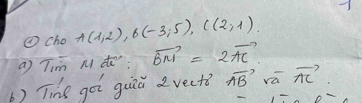 ④ Cho A(1,2), B(-3;5), C(2;1).
a) Tìm M để: BM⃗ = 2AC⃗.
b) Tính góc giữa 2 vectơ AB⃗ và AC⃗.